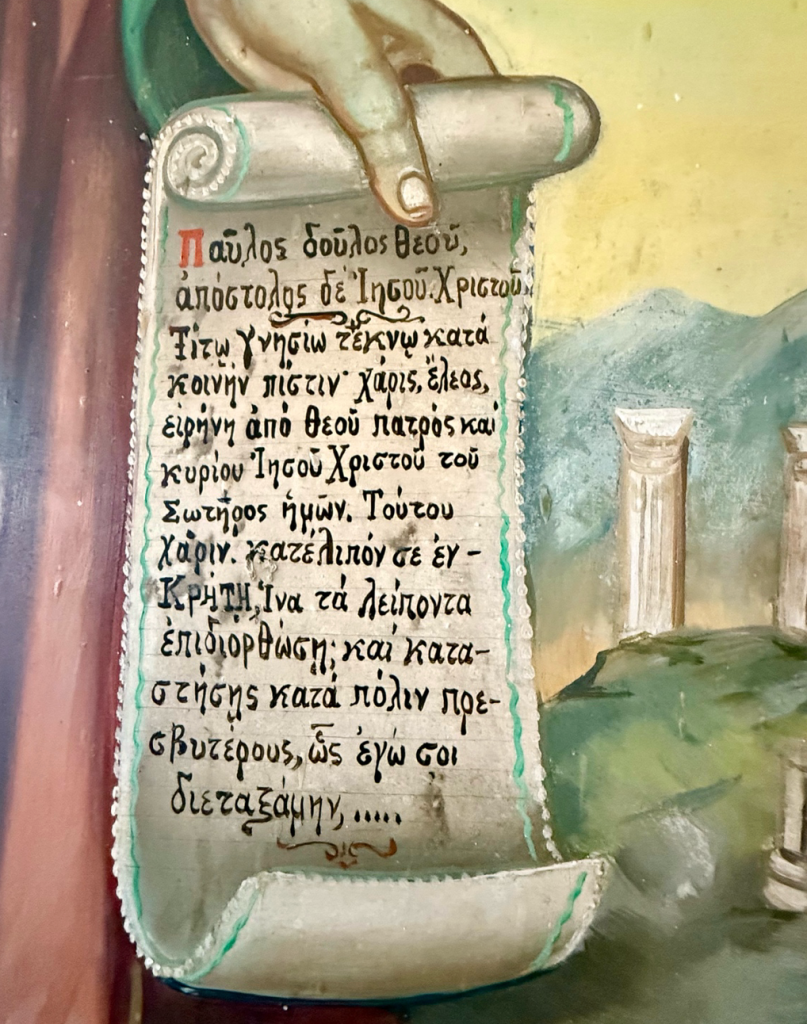 Παῦλος δοῦλος θεοῦ,
ἀπόστολος δέ Ἰησοῦ Χριστοῦ
Τίτῳ γνησίω τέκνῳ κατά
κοινήν πίστιν· χάρις, ἔλεος,
εἰρήνη ἀπό θεοῦ πατρός καί
κυρίου Ἰησοῦ Χριστοῦ τοῦ
Σωτῆρος ἡμῶν. Τούτου
χάριν. κατέλιπόν σε ἐν -
ΚΡΗΤΗ, Ἵνα τά λείποντα
ἐπιδιορθώσῃ; καί κατα-
στήσῃς κατά πόλιν πρε-
σβυτέρους, ὧς ἐγώ σοι
διεταξάμην, .....